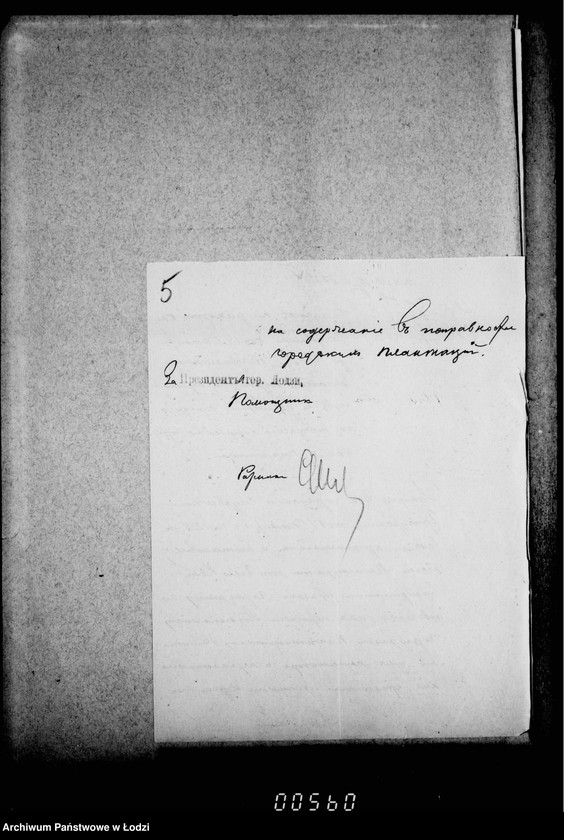 5
на содержаніе въ исправности
городскихъ плантацій.
За Президента гор. Лодзи,
Помощникъ
00560
Archiwum Państwowe w Łodzi